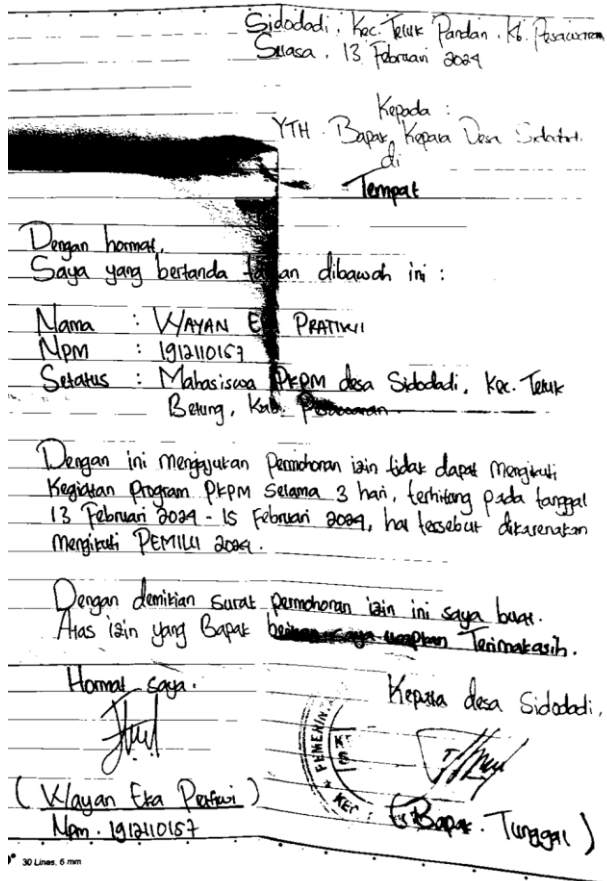 Sidodadi, Kec. Teluk Pandan. Kb. Pesawaran
Selasa, 13 Februari 2024
Kepada :
YTH. Bapak Kepala Desa Sidodadi.
di
Tempat
Dengan hormat,
Saya yang bertanda tangan dibawah ini :
Nama : WAYAN EKA PRATIWI
NPM : 1912110157
Setatus : Mahasiswa PKPM desa Sidodadi, Kec. Teluk
Betung, Kab. Pesawaran.
Dengan ini mengajukan Permohonan izin tidak dapat mengikuti
Kegiatan Program PKPM Selama 3 hari, terhitung pada tanggal
13 Februari 2024 - 15 Februari 2024, hal tersebut dikarenakan
mengikuti PEMILU 2024.
Dengan demikian surat permohonan izin ini saya buat.
Atas izin yang Bapak berikan saya ucapkan Terimakasih.
Hormat saya.
Kepala desa Sidodadi,
PEMERIN
KEC
( Wayan Eka Pratiwi )
(Bapak. Tunggal )
Npm. 1912110157
30 Lines, 6 mm